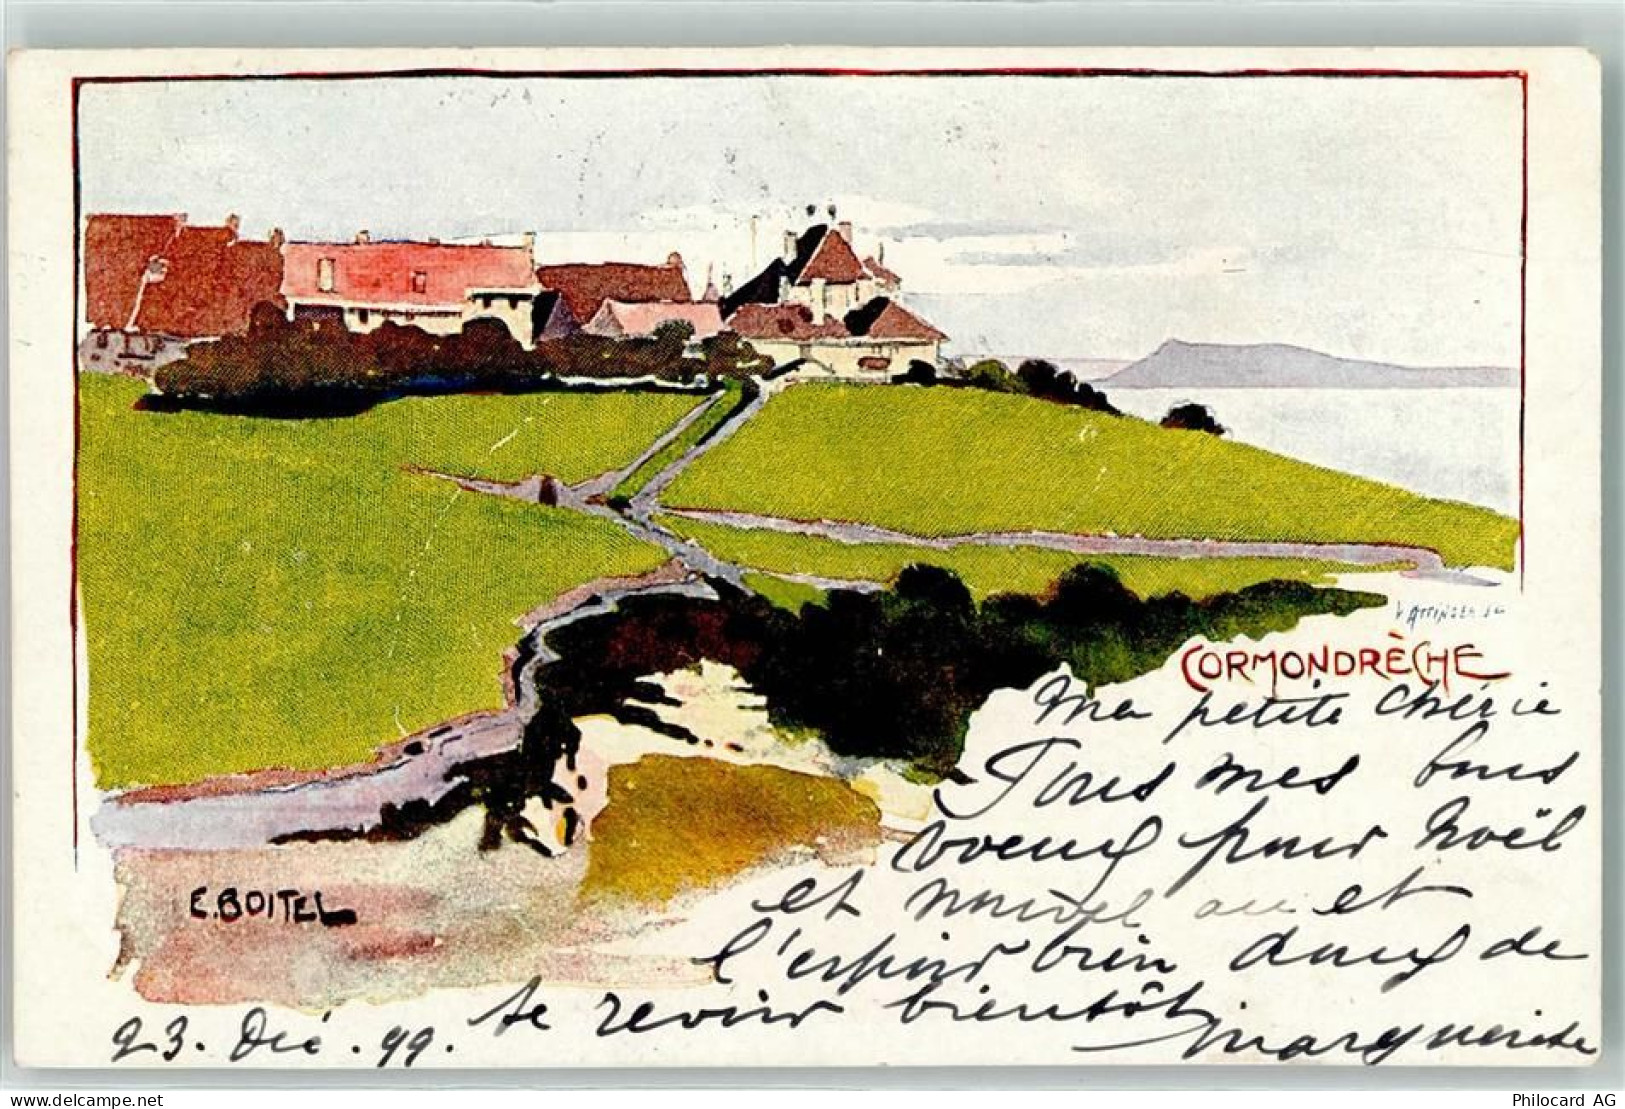 V. ATTINGER SC
CORMONDRÈCHE
Ma petite chérie
Tous mes bons
voeux pour Noël
et nouvel an et
l'espoir bien doux de
te revoir bientôt
Marguerite
23. Déc. 99.
E. BOITEL
www.delcampe.net
philocard.de
Philocard AG